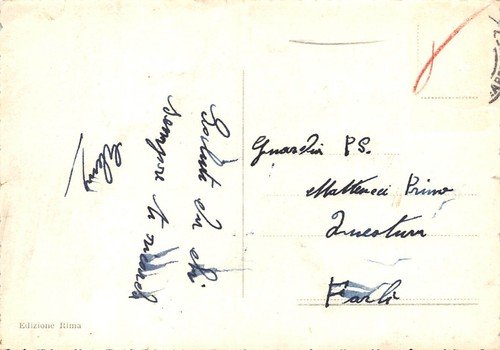 Saluti da chi
sempre ti ricorda
Guardia PS.
Matteucci Primo
Questura
Forlì
Edizione Rima